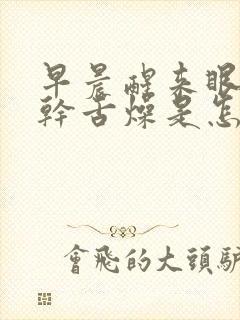 早晨醒来眼
幹舌燥是怎
會飛的大頭驴